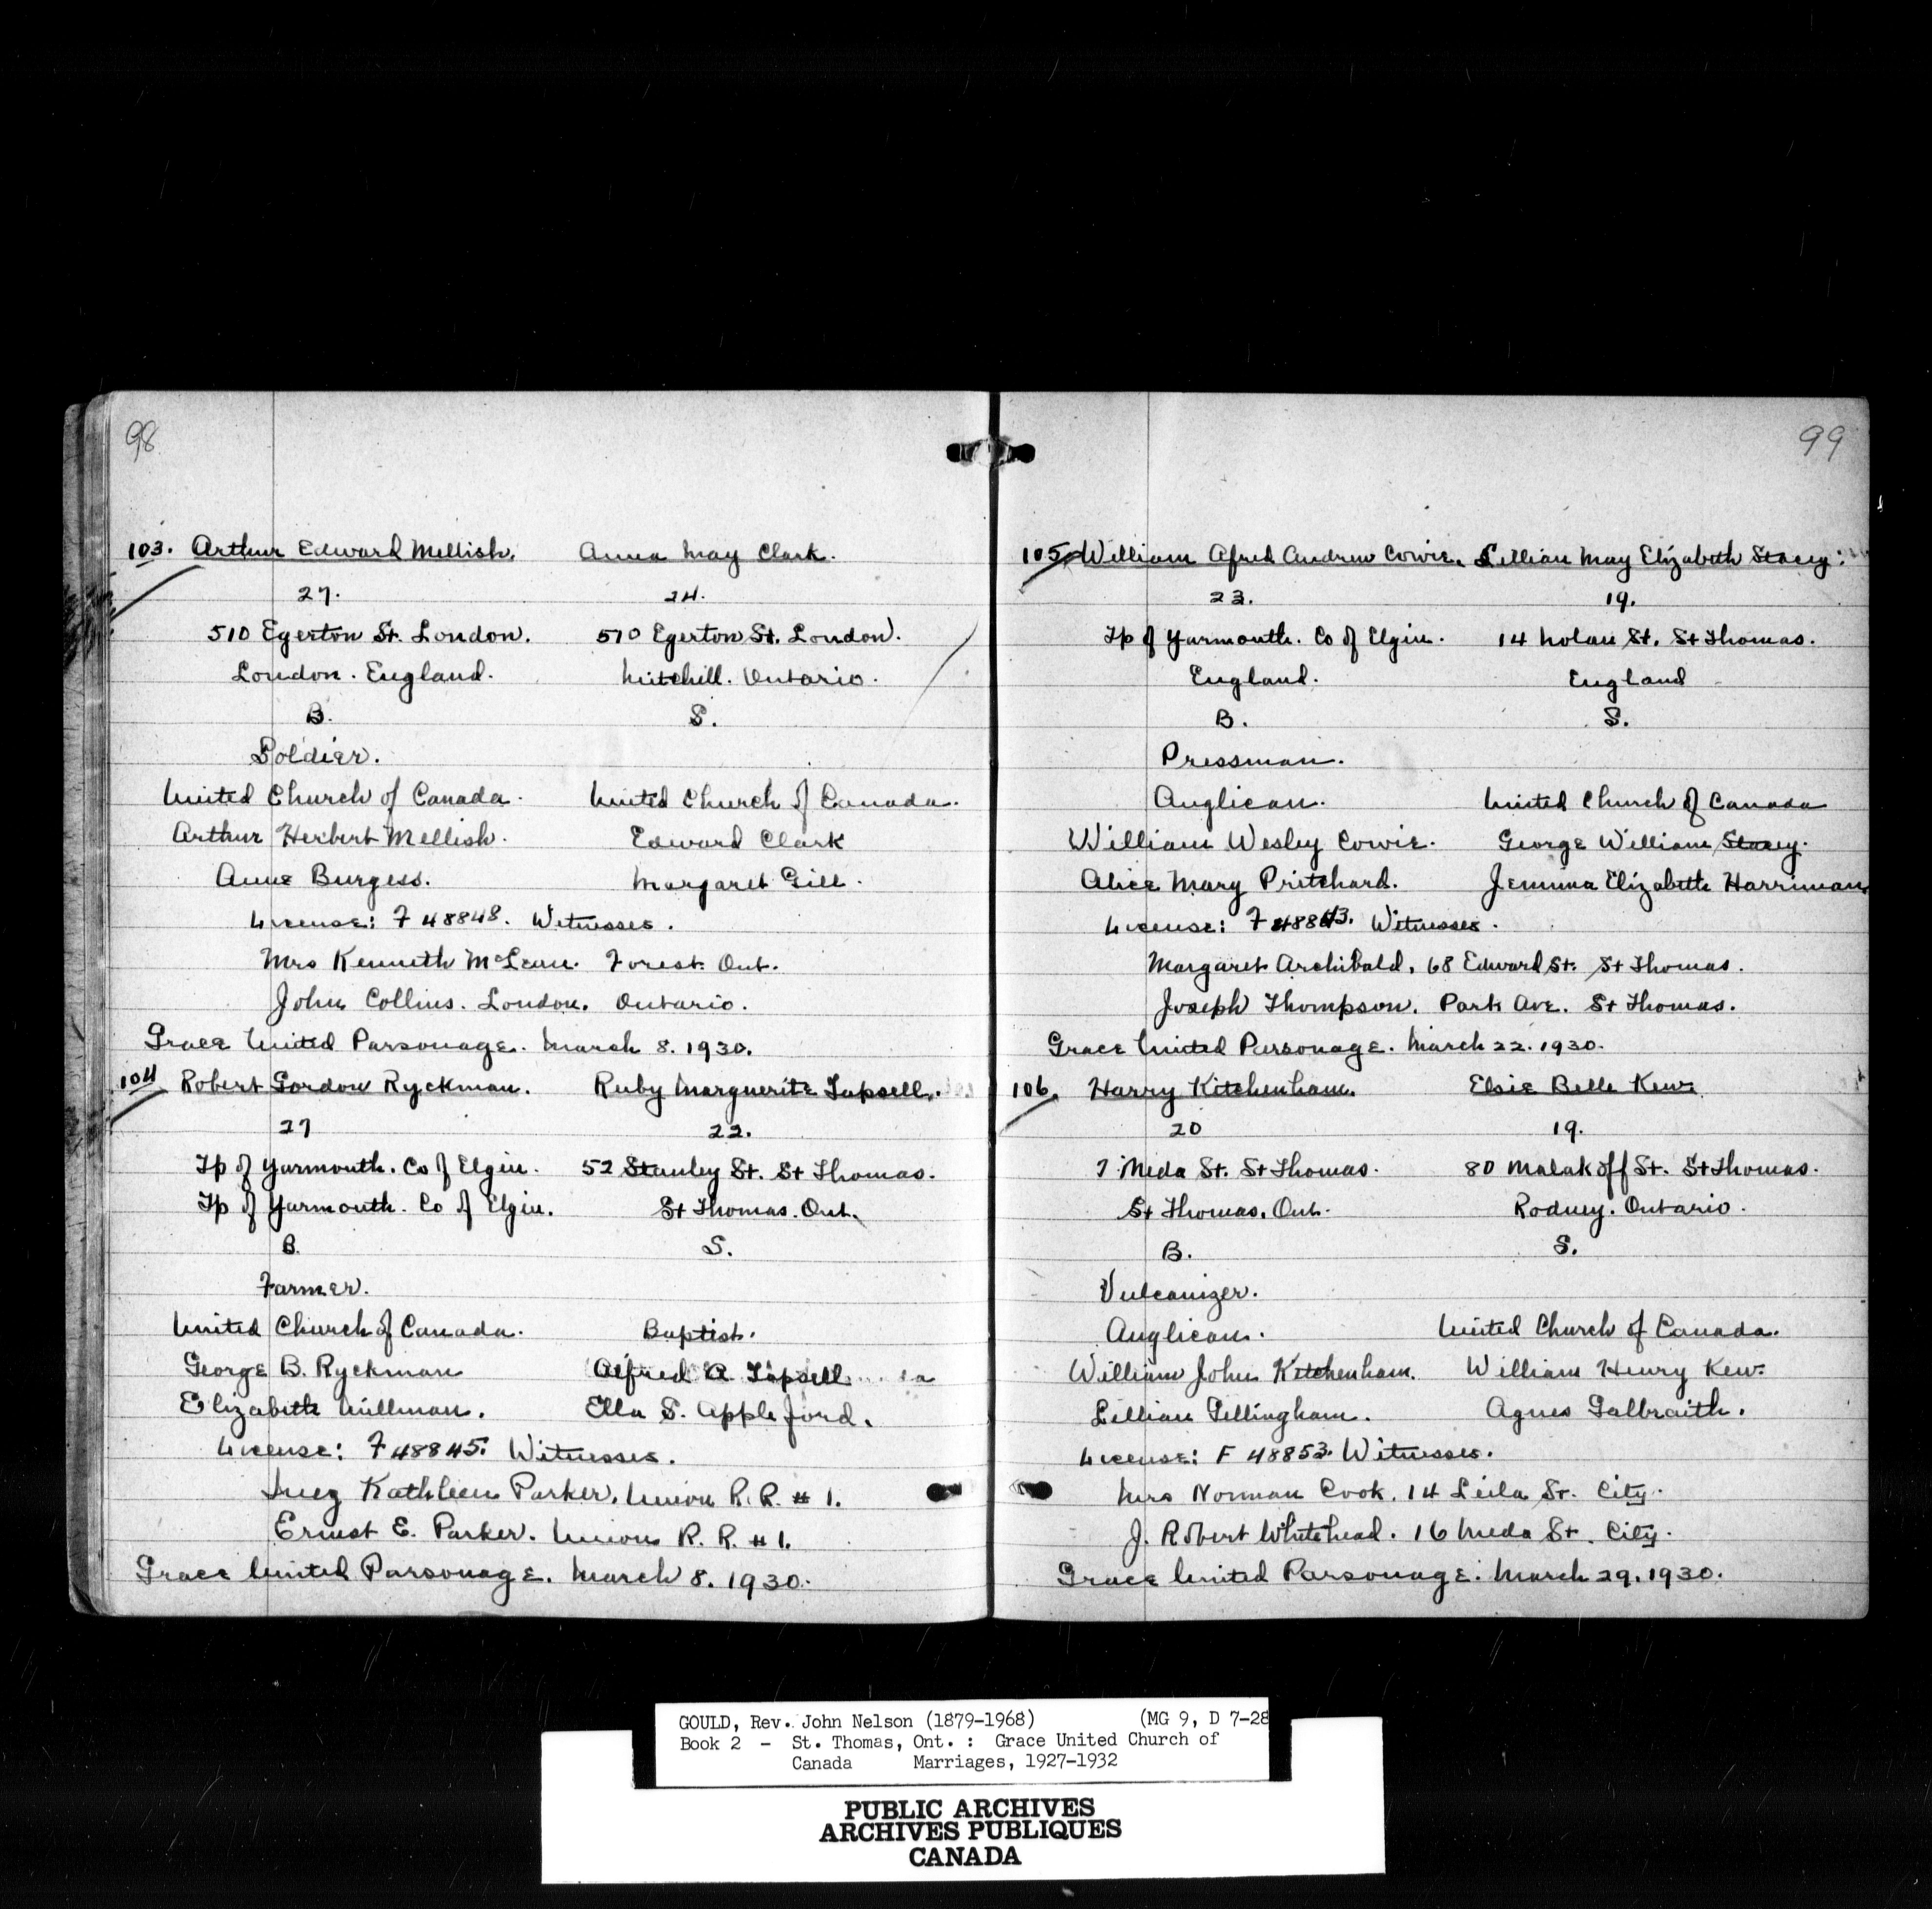 98
103. Arthur Edward Mellish. Anna May Clark.
27. 24.
510 Egerton St. London. 510 Egerton St. London.
London. England. Mitchill. Ontario.
B. S.
Soldier.
United Church of Canada. United Church of Canada.
Arthur Herbert Mellish. Edward Clark
Anne Burgess. Margaret Gill.
License: F 48848. Witnesses.
Mrs Kenneth McLean. Forest. Ont.
John Collins. London. Ontario.
Grace United Parsonage. March 8. 1930.
104 Robert Gordon Ryckman. Ruby Marguerite Tapsell.
27 22.
Tp of Yarmouth. Co of Elgin. 52 Stanley St. St Thomas.
Tp of Yarmouth. Co of Elgin. St Thomas. Ont.
B. S.
Farmer.
United Church of Canada. Baptist.
George B. Ryckman Alfred A. Tapsell
Elizabeth Millman. Ella S. Appleford.
License: F 48845. Witnesses.
Inez Kathleen Parker. Union R. R. # 1.
Ernest E. Parker. Union R. R. # 1.
Grace United Parsonage. March 8. 1930.
99
105 William Afred Andrew Cowie. Lillian May Elizabeth Stacey:
23. 19.
Tp of Yarmouth. Co of Elgin. 14 Nolan St. St Thomas.
England. England
B. S.
Pressman.
Anglican. United Church of Canada
William Wesley Cowie. George William Stacey.
Alice Mary Pritchard. Jemima Elizabeth Harriman.
License: F 48843. Witnesses.
Margaret Archibald, 68 Edward St. St Thomas.
Joseph Thompson. Park Ave. St Thomas.
Grace United Parsonage. March 22. 1930.
106. Harry Kitchenham. Elsie Belle Kew.
20 19.
7 Meda St. St Thomas. 80 Malakoff St. St Thomas.
St Thomas. Ont. Rodney. Ontario.
B. S.
Vulcanizer.
Anglican. United Church of Canada.
William John Kitchenham. William Henry Kew.
Lillian Gillingham. Agnes Galbraith.
License: F 48853. Witnesses.
Mrs Norman Cook. 14 Leila St. City.
J. Robert Whitehead. 16 Meda St. City.
Grace United Parsonage. March 29. 1930.
GOULD, Rev. John Nelson (1879-1968) (MG 9, D 7-28
Book 2 - St. Thomas, Ont. : Grace United Church of
Canada Marriages, 1927-1932
PUBLIC ARCHIVES
ARCHIVES PUBLIQUES
CANADA